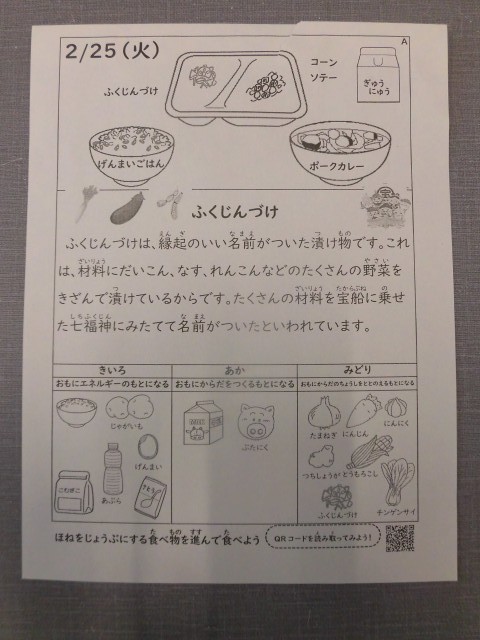 A
2/25(火)
コーン
ソテー
ふくじんづけ
ぎゅう
にゅう
げんまいごはん
ポークカレー
ふくじんづけ
ふくじんづけは、縁起のいい名前がついた漬け物です。これ
は、材料にだいこん、なす、れんこんなどのたくさんの野菜を
きざんで漬けているからです。たくさんの材料を宝船に乗せ
た七福神にみたてて名前がついたといわれています。
きいろ
おもにエネルギーのもとになる
じゃがいも
げんまい
こむぎこ
あぶら
あか
おもにからだをつくるもとになる
ぶたにく
みどり
おもにからだのちょうしをととのえるもとになる
たまねぎ
にんじん
にんにく
つちしょうが
とうもろこし
ふくじんづけ
チンゲンサイ
ほねをじょうぶにする食べ物を進んで食べよう
QRコードを読み取ってみよう!